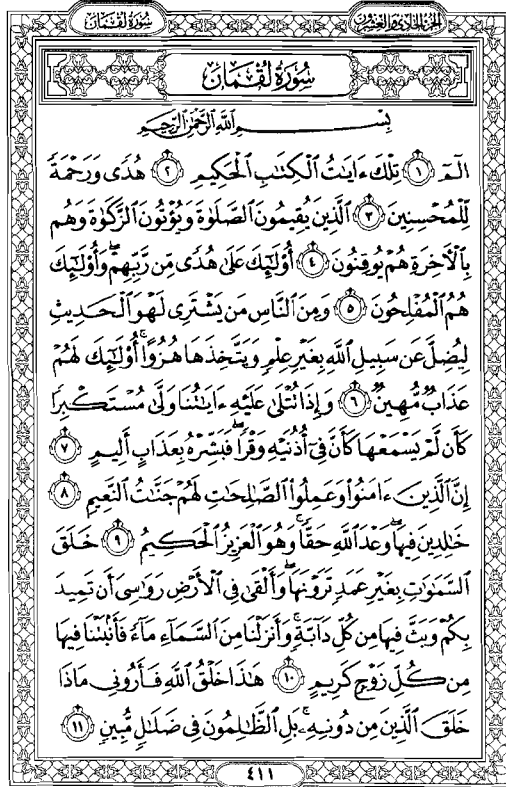 سُورَةُ لُقْمَان
الجزء الحادي والعشرون
سُورَةُ لُقْمَان
بِسْمِ ٱللَّهِ ٱلرَّحْمَٰنِ ٱلرَّحِيمِ
الٓمٓ ١ تِلْكَ ءَايَٰتُ ٱلْكِتَٰبِ ٱلْحَكِيمِ ٢ هُدًى وَرَحْمَةً
لِّلْمُحْسِنِينَ ٣ ٱلَّذِينَ يُقِيمُونَ ٱلصَّلَوٰةَ وَيُؤْتُونَ ٱلزَّكَوٰةَ وَهُم
بِٱلْءَاخِرَةِ هُمْ يُوقِنُونَ ٤ أُو۟لَٰٓئِكَ عَلَىٰ هُدًى مِّن رَّبِّهِمْ ۖ وَأُو۟لَٰٓئِكَ
هُمُ ٱلْمُفْلِحُونَ ٥ وَمِنَ ٱلنَّاسِ مَن يَشْتَرِى لَهْوَ ٱلْحَدِيثِ
لِيُضِلَّ عَن سَبِيلِ ٱللَّهِ بِغَيْرِ عِلْمٍ وَيَتَّخِذَهَا هُزُوًا ۚ أُو۟لَٰٓئِكَ لَهُمْ
عَذَابٌ مُّهِينٌ ٦ وَإِذَا تُتْلَىٰ عَلَيْهِ ءَايَٰتُنَا وَلَّىٰ مُسْتَكْبِرًا
كَأَن لَّمْ يَسْمَعْهَا كَأَنَّ فِىٓ أُذُنَيْهِ وَقْرًا ۖ فَبَشِّرْهُ بِعَذَابٍ أَلِيمٍ ٧
إِنَّ ٱلَّذِينَ ءَامَنُوا۟ وَعَمِلُوا۟ ٱلصَّٰلِحَٰتِ لَهُمْ جَنَّٰتُ ٱلنَّعِيمِ ٨
خَٰلِدِينَ فِيهَا ۖ وَعْدَ ٱللَّهِ حَقًّا ۚ وَهُوَ ٱلْعَزِيزُ ٱلْحَكِيمُ ٩ خَلَقَ
ٱلسَّمَٰوَٰتِ بِغَيْرِ عَمَدٍ تَرَوْنَهَا ۖ وَأَلْقَىٰ فِى ٱلْأَرْضِ رَوَٰسِىَ أَن تَمِيدَ
بِكُمْ وَبَثَّ فِيهَا مِن كُلِّ دَآبَّةٍ ۚ وَأَنزَلْنَا مِنَ ٱلسَّمَآءِ مَآءً فَأَنۢبَتْنَا فِيهَا
مِن كُلِّ زَوْجٍ كَرِيمٍ ١٠ هَٰذَا خَلْقُ ٱللَّهِ فَأَرُونِى مَاذَا
خَلَقَ ٱلَّذِينَ مِن دُونِهِۦ ۚ بَلِ ٱلظَّٰلِمُونَ فِى ضَلَٰلٍ مُّبِينٍ ١١
٤١١